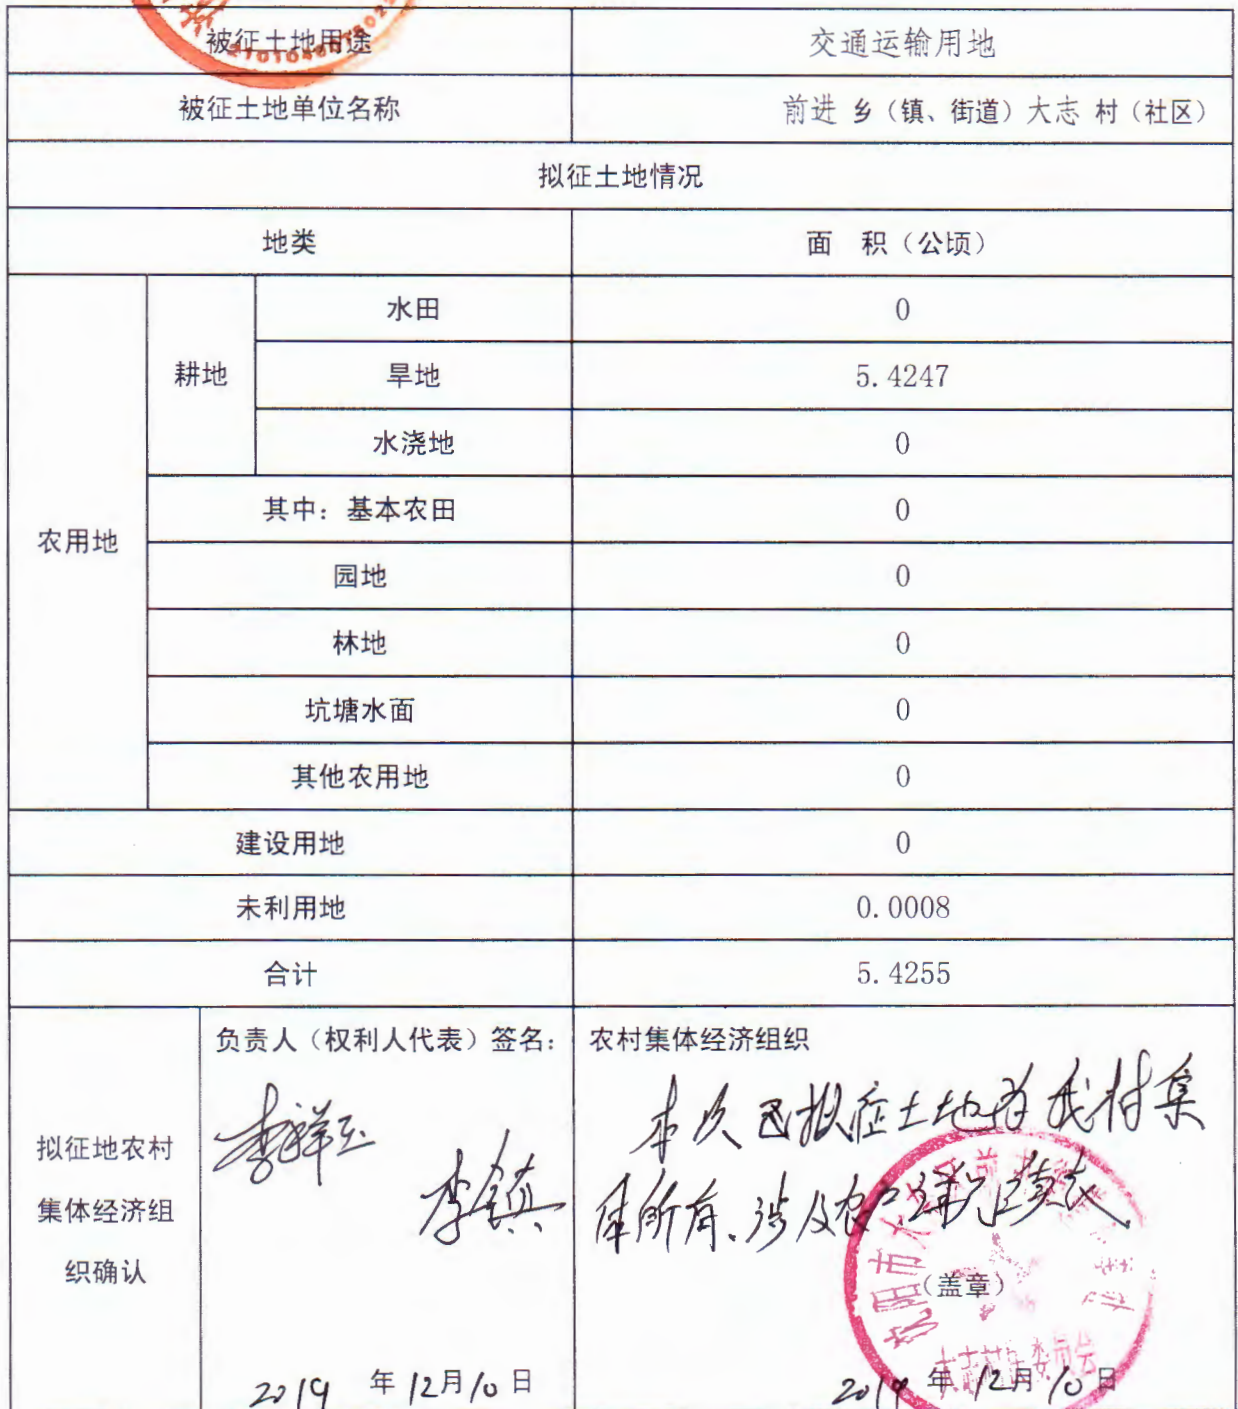 被征土地用途 交通运输用地
被征土地单位名称 前进 乡（镇、街道）大志 村（社区）
拟征土地情况
地类 面 积（公顷）
农用地 耕地 水田 0
旱地 5.4247
水浇地 0
其中：基本农田 0
园地 0
林地 0
坑塘水面 0
其他农用地 0
建设用地 0
未利用地 0.0008
合计 5.4255
拟征地农村
集体经济组
织确认
负责人（权利人代表）签名：
李祥玉
李镇
2019 年 12月10日
农村集体经济组织
本次 拟征土地为我村集
体所有、涉及农户
（盖章）
沈阳市大
大志村民委员会
2019 年 12月10日